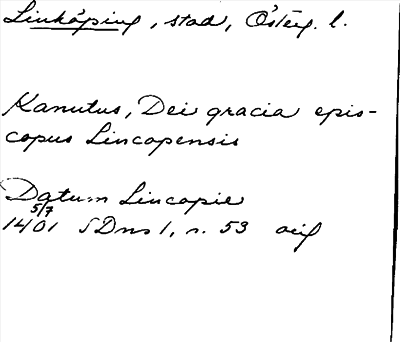 Linköping, stad, Österg. l.
Kanutus, Dei gracia epis-
copus Lincopensis
Datum Lincopie
5/7
1401 SDns 1, n. 53